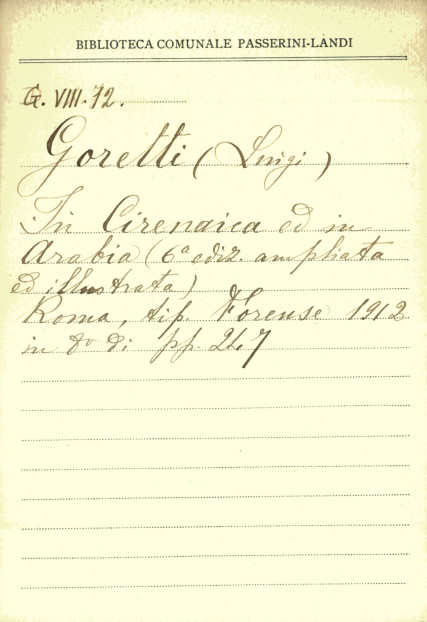 BIBLIOTECA COMUNALE PASSERINI-LANDI
G. VIII. 72.
Goretti (Luigi)
In Cirenaica ed in
Arabia (6a ediz. ampliata
ed illustrata)
Roma, tip. Forense 1912
in 8o di pp. 247